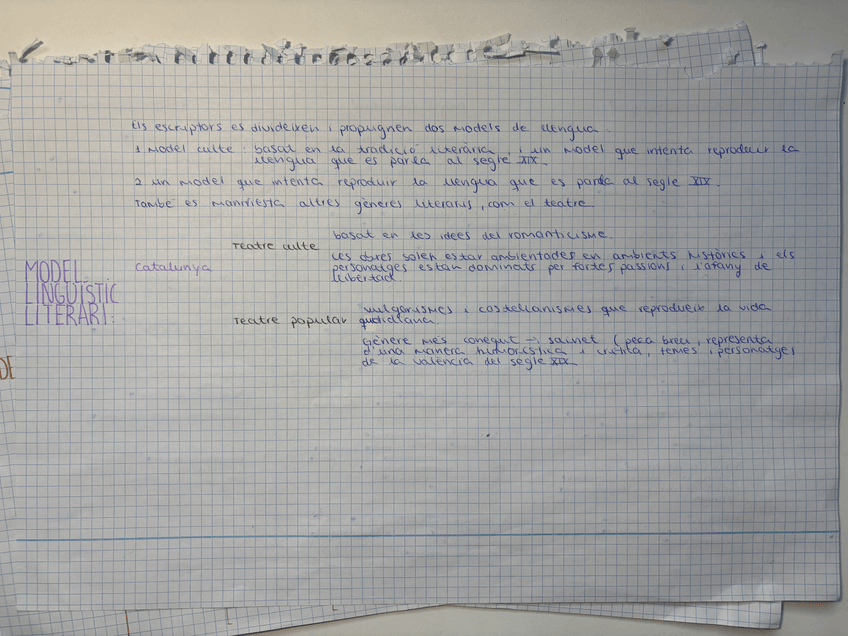 Els escriptors es divideixen i propugnen dos models de llengua.
1 Model culte: basat en la tradició literària, i un model que intenta reproduir la
llengua que es parla al segle XIX.
2 un model que intenta reproduir la llengua que es parla al segle XIX.
També es manifesta altres gèneres literaris, com el teatre
basat en les idees del romanticisme.
Teatre culte
Les obres solen estar ambientades en ambients històrics i els
personatges estan dominats per fortes passions i l'afany de
llibertad
MODEL
LINGUISTIC
LITERARI:
Catalunya
vulgarismes i castellanismes que reprodueix la vida
Teatre popular quotidiana.
Gènere més conegut → sainet (peça breu, representa
d'una manera humorística i crítica, temes i personatges
de la valència del segle XIX
DE